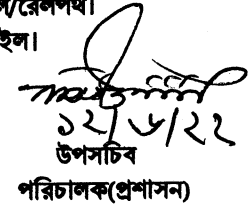 রেলপথ।
ইল।
১২/৬/২২
উপসচিব
পরিচালক(প্রশাসন)